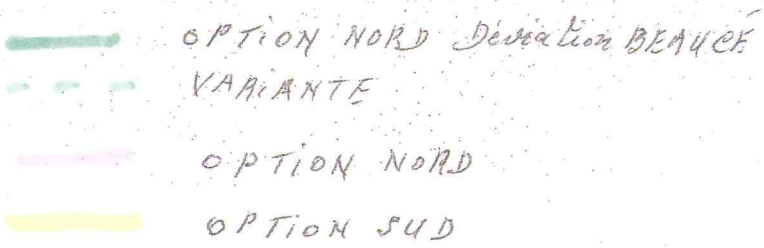 OPTION NORD Déviation BEAUCÉ
VARIANTE
OPTION NORD
OPTION SUD